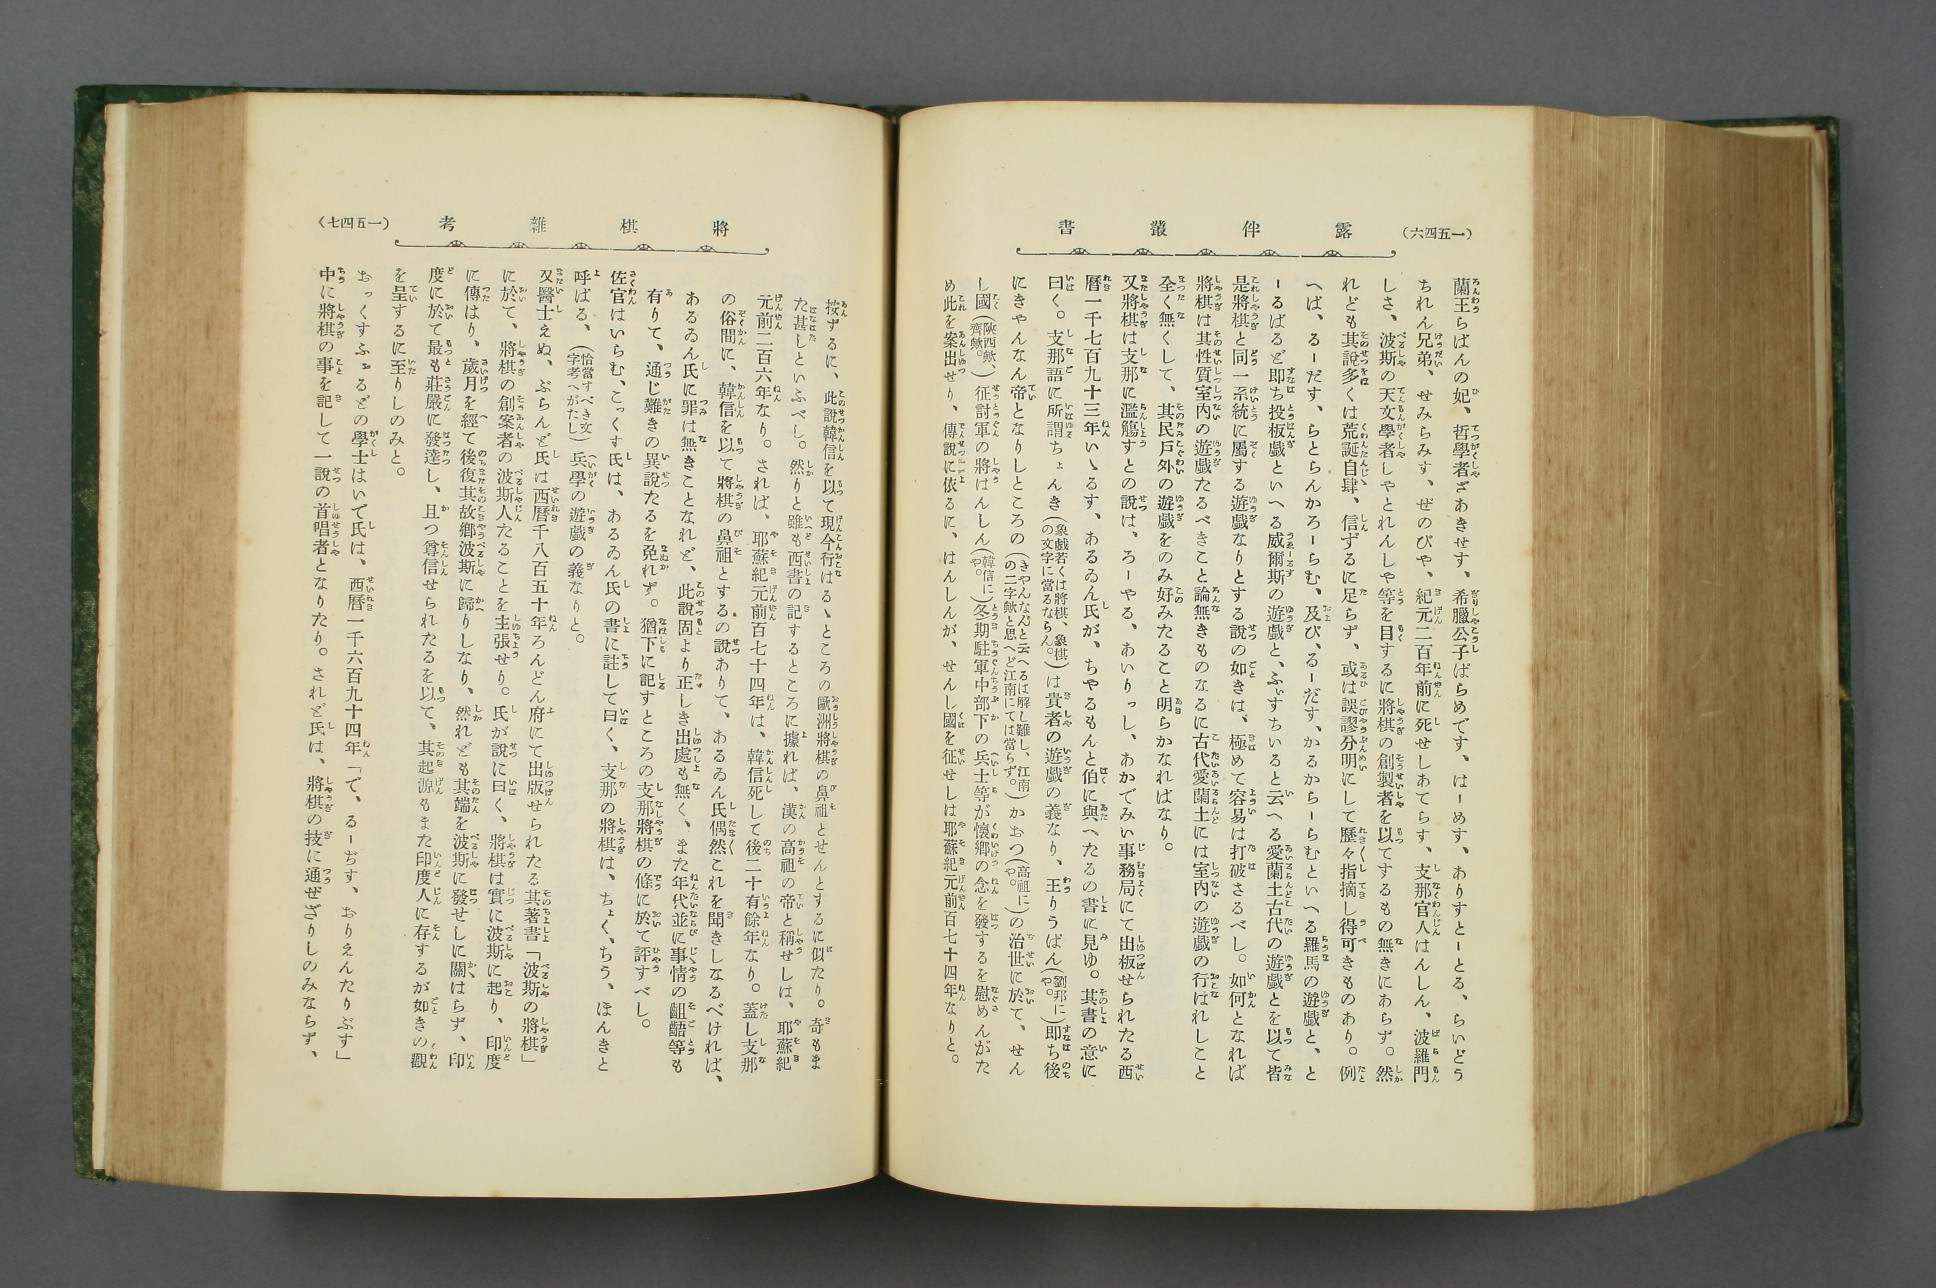 (一五四六)
露伴叢書
蘭王らばんの妃、哲學者ざあきせす、希臘公子ぱらめです、はーめす、ありすとーとる、らいどう
ちれん兄弟、せみらみす、ぜのびや、紀元二百年前に死せしあてらす、支那官人はんしん、波羅門
しさ、波斯の天文學者しやとれんしや等を目するに將棋の創製者を以てするもの無きにあらず。然
れども其說多くは荒誕自肆、信ずるに足らず、或は誤謬分明にして歷々指摘し得可きものあり。例
へば、るーだす、らとらんかろーらむ、及び、るーだす、かるからーらむといへる羅馬の遊戲と、と
ーるばるど卽ち投板戲といへる威爾斯の遊戲と、ふぃすちいると云へる愛蘭土古代の遊戲とを以て皆
是將棋と同一系統に屬する遊戲なりとする說の如きは、極めて容易に打破さるべし。如何となれば
將棋は其性質室內の遊戲たるべきこと論無きものなるに古代愛蘭土には室內の遊戲の行はれしこと
全く無くして、其民戶外の遊戲をのみ好みたること明らかなればなり。
又將棋は支那に濫觴すとの說は、ろーやる、あいりっし、あかでみい事務局にて出板せられたる西
曆一千七百九十三年いゝるす、あるゐん氏が、ちやるもんと伯に與へたるの書に見ゆ。其書の意に
曰く。支那語に所謂ちょんき(象戲若くは將棋、象棋の文字に當るならん。)は貴者の遊戲の義なり、王りうぱん(劉邦にや。)卽ち後
にきゃんなん帝となりしところの(きやんなんと云へるは解し難し、江南の二字歟と思へど江南にては當らず。)かおつ(高祖にや。)の治世に於て、せん
し國(陝西歟、齊歟。)征討軍の將はんしん(韓信にや。)冬期駐軍中部下の兵士等が懷鄉の念を發するを慰めんがた
め此を案出せり、傳說に依るに、はんしんが、せんし國を征せしは耶蘇紀元前百七十四年なりと。
將棋雜考
(一五四七)
按ずるに、此說韓信を以て現今行はるゝところの歐洲將棋の鼻祖とせんとするに似たり。奇もま
た甚しといふべし。然りと雖も西書の記するところに據れば、漢の高祖の帝と稱せしは、耶蘇紀
元前二百六年なり。されば、耶蘇紀元前百七十四年は、韓信死して後二十有餘年なり。蓋し支那
の俗間に、韓信を以て將棋の鼻祖とするの說ありて、あるゐん氏偶然これを聞きしなるべければ、
あるゐん氏に罪は無きことなれど、此說固より正しき出處も無く、また年代並に事情の齟齬等も
有りて、通じ難きの異說たるを免れず。猶下に記すところの支那將棋の條に於て評すべし。
佐官はいらむ、こっくす氏は、あるゐん氏の書に註して曰く、支那の將棋は、ちょく、ちう、ほんきと
呼ばる、(恰當すべき文字考へがたし)兵學の遊戲の義なりと。
又醫士えぬ、ぶらんど氏は西曆千八百五十年ろんどん府にて出版せられたる其著書「波斯の將棋」
に於て、將棋の創案者の波斯人たることを主張せり。氏が說に曰く、將棋は實に波斯に起り、印度
に傳はり、歲月を經て後復其故鄕波斯に歸りしなり、然れども其端を波斯に發せしに關はらず、印
度に於て最も莊嚴に發達し、且つ尊信せられたるを以て、其起源もまた印度人に存するが如きの觀
を呈するに至りしのみと。
おっくすふゝるどの學士はいで氏は、西曆一千六百九十四年「で、るーぢす、おりえんたりぶす」
中に將棋の事を記して一說の首唱者となりたり。されど氏は、將棋の技に通ぜざりしのみならず、